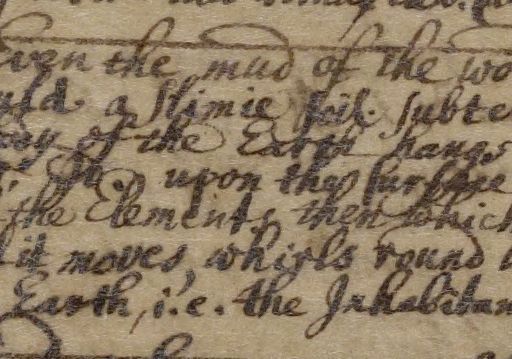 even the mud of the wo
uld a slimie soil. subte
of the Earth hangs
upon the surface
the Elements then which
it moves, whirls round
Earth, i.e. the Inhabitan